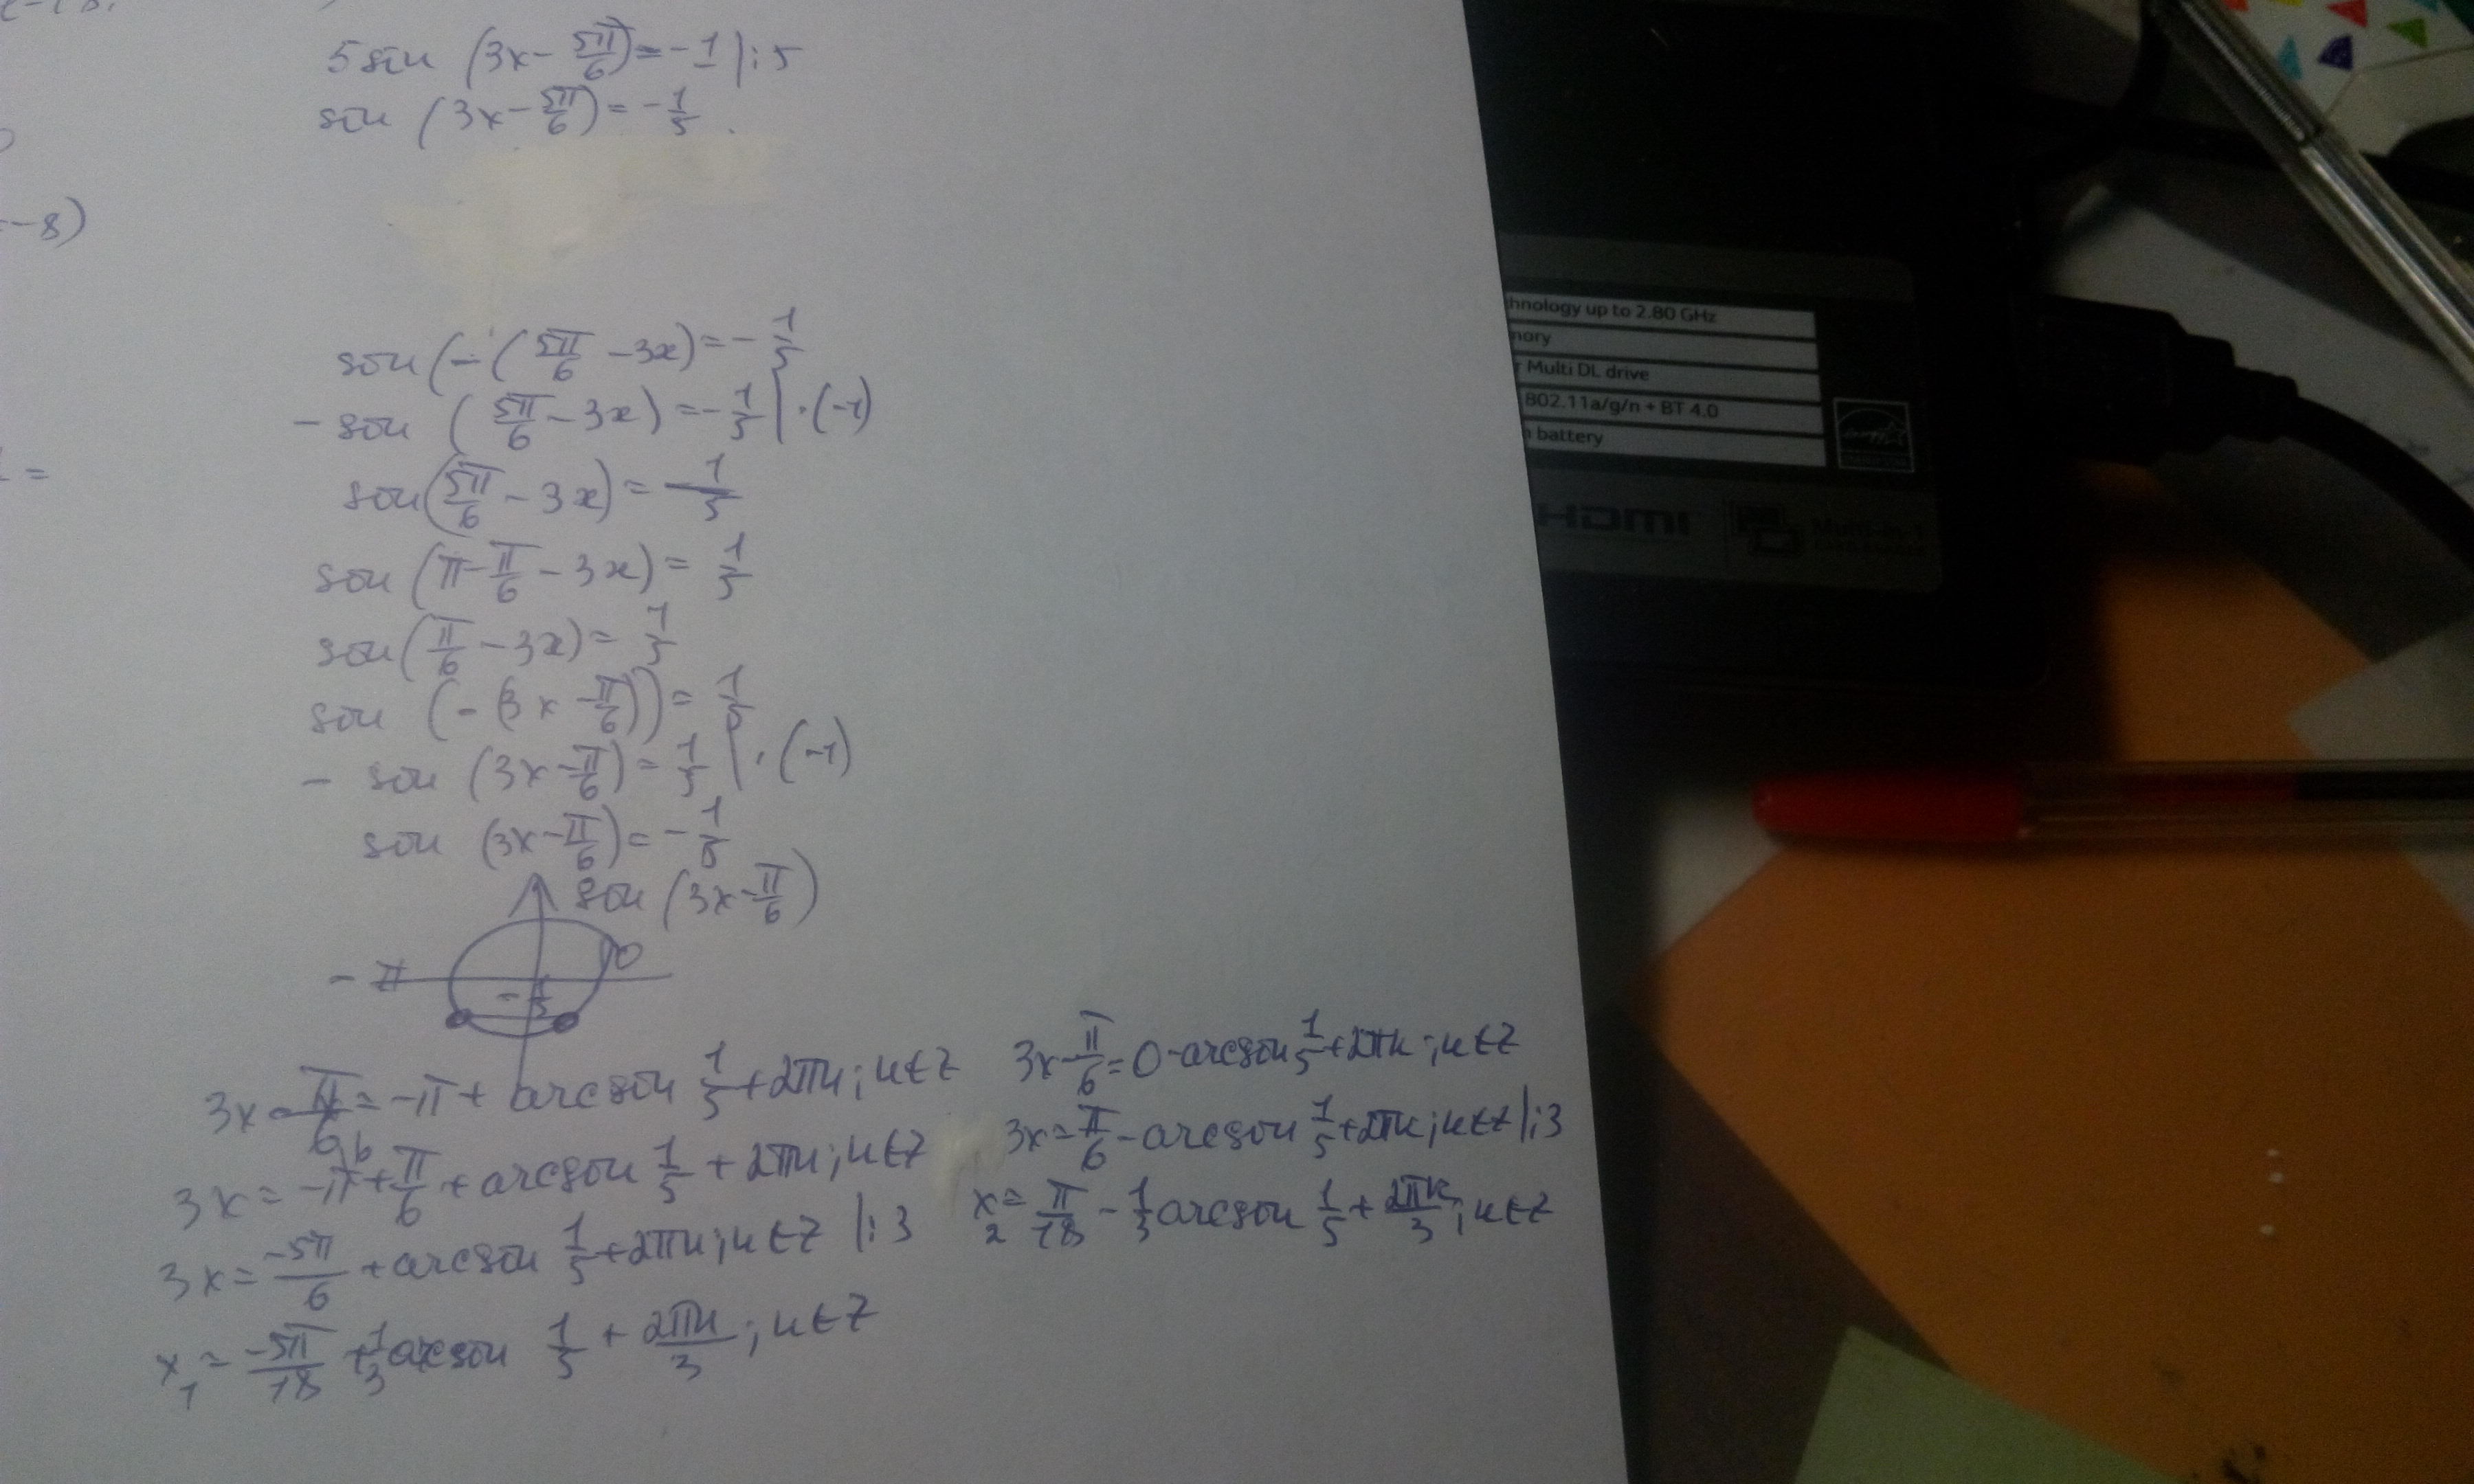 5 sin (3x - 5π/6) = -1 |:5
sin (3x - 5π/6) = -1/5
-8)
=
sin (-(5π/6 - 3x) = -1/5
- sin (5π/6 - 3x) = -1/5 | ·(-1)
sin (5π/6 - 3x) = 1/5
sin (π - π/6 - 3x) = 1/5
sin (π/6 - 3x) = 1/5
sin (-(3x - π/6)) = 1/5
- sin (3x - π/6) = 1/5 | ·(-1)
sin (3x - π/6) = -1/5
sin (3x - π/6)
-π 0
-1/5
3x - π/6 = -π + arcsin 1/5 + 2πn; n∈Z
3x = -π + π/6 + arcsin 1/5 + 2πn; n∈Z
3x = -5π/6 + arcsin 1/5 + 2πn; n∈Z |:3
x₁ = -5π/18 + 1/3 arcsin 1/5 + 2πn/3; n∈Z
3x - π/6 = 0 - arcsin 1/5 + 2πn; n∈Z
3x = π/6 - arcsin 1/5 + 2πn; n∈Z |:3
x₂ = π/18 - 1/3 arcsin 1/5 + 2πn/3; n∈Z
hnology up to 2.80 GHz
mory
r Multi DL drive
802.11a/g/n + BT 4.0
n battery
HDMI
Multi-in-1